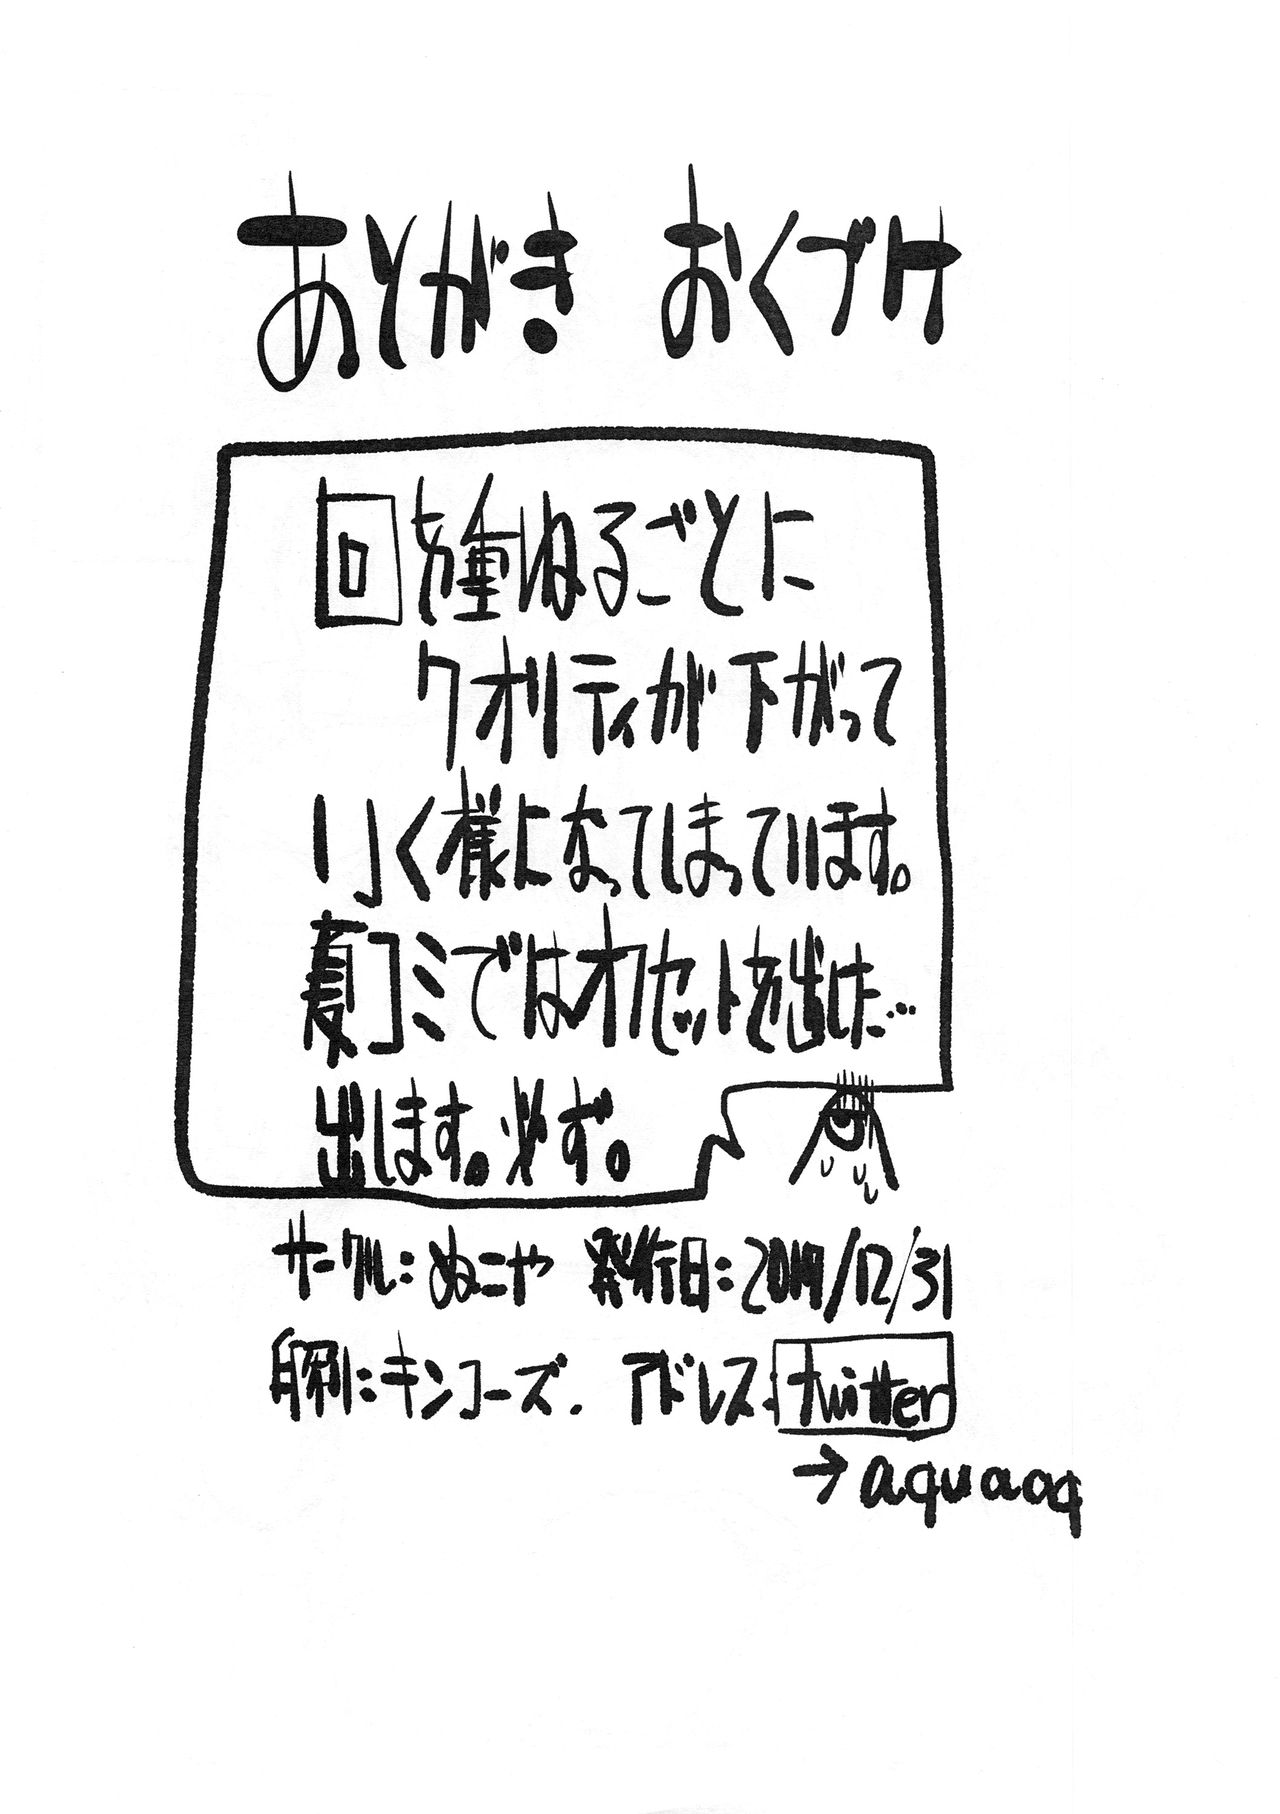 あとがき おくづけ
回を重ねるごとに
クオリティが下がって
いく様になってしまっています。
夏コミではオフセットを出した…
出します。必ず。
サークル:ぬこや 発行日:2017/12/31
印刷:キンコーズ. アドレス. twitter
→aquaoq